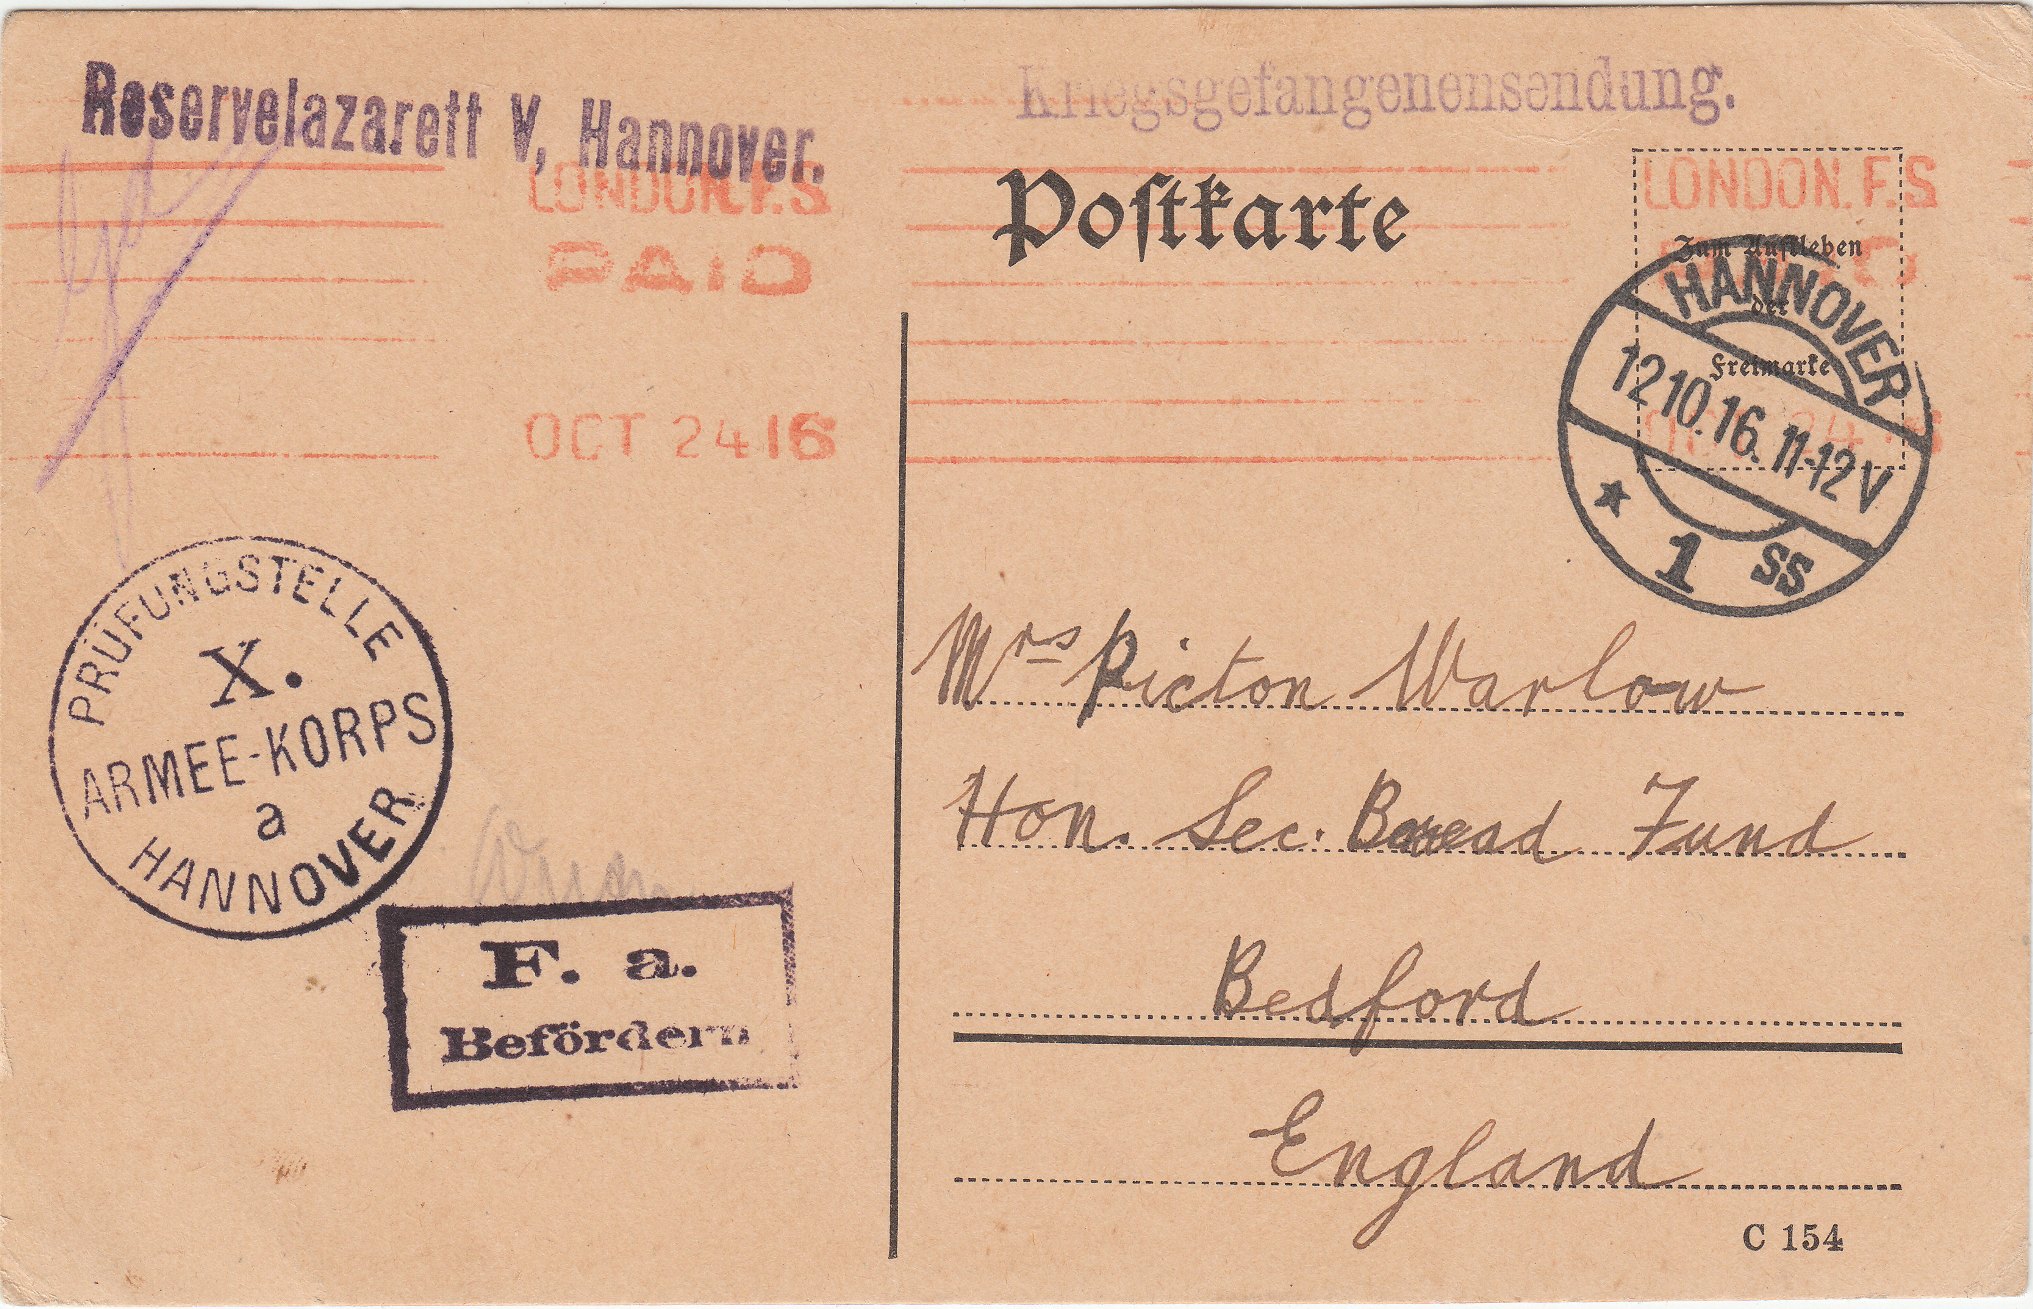 Reservelazarett V, Hannover.
Kriegsgefangenensendung.
LONDON.F.S
PAID
OCT 24 16
Postkarte
LONDON.F.S
Zum Aufkleben
der
Freimarke
HANNOVER
12 10.16. 11-12 V
* 1 SS
PRÜFUNGSTELLE
X.
ARMEE-KORPS
a
HANNOVER
F. a.
Befördern
Mrs Picton Warlow
Hon. Sec. Bread Fund
Bedford
England
C 154